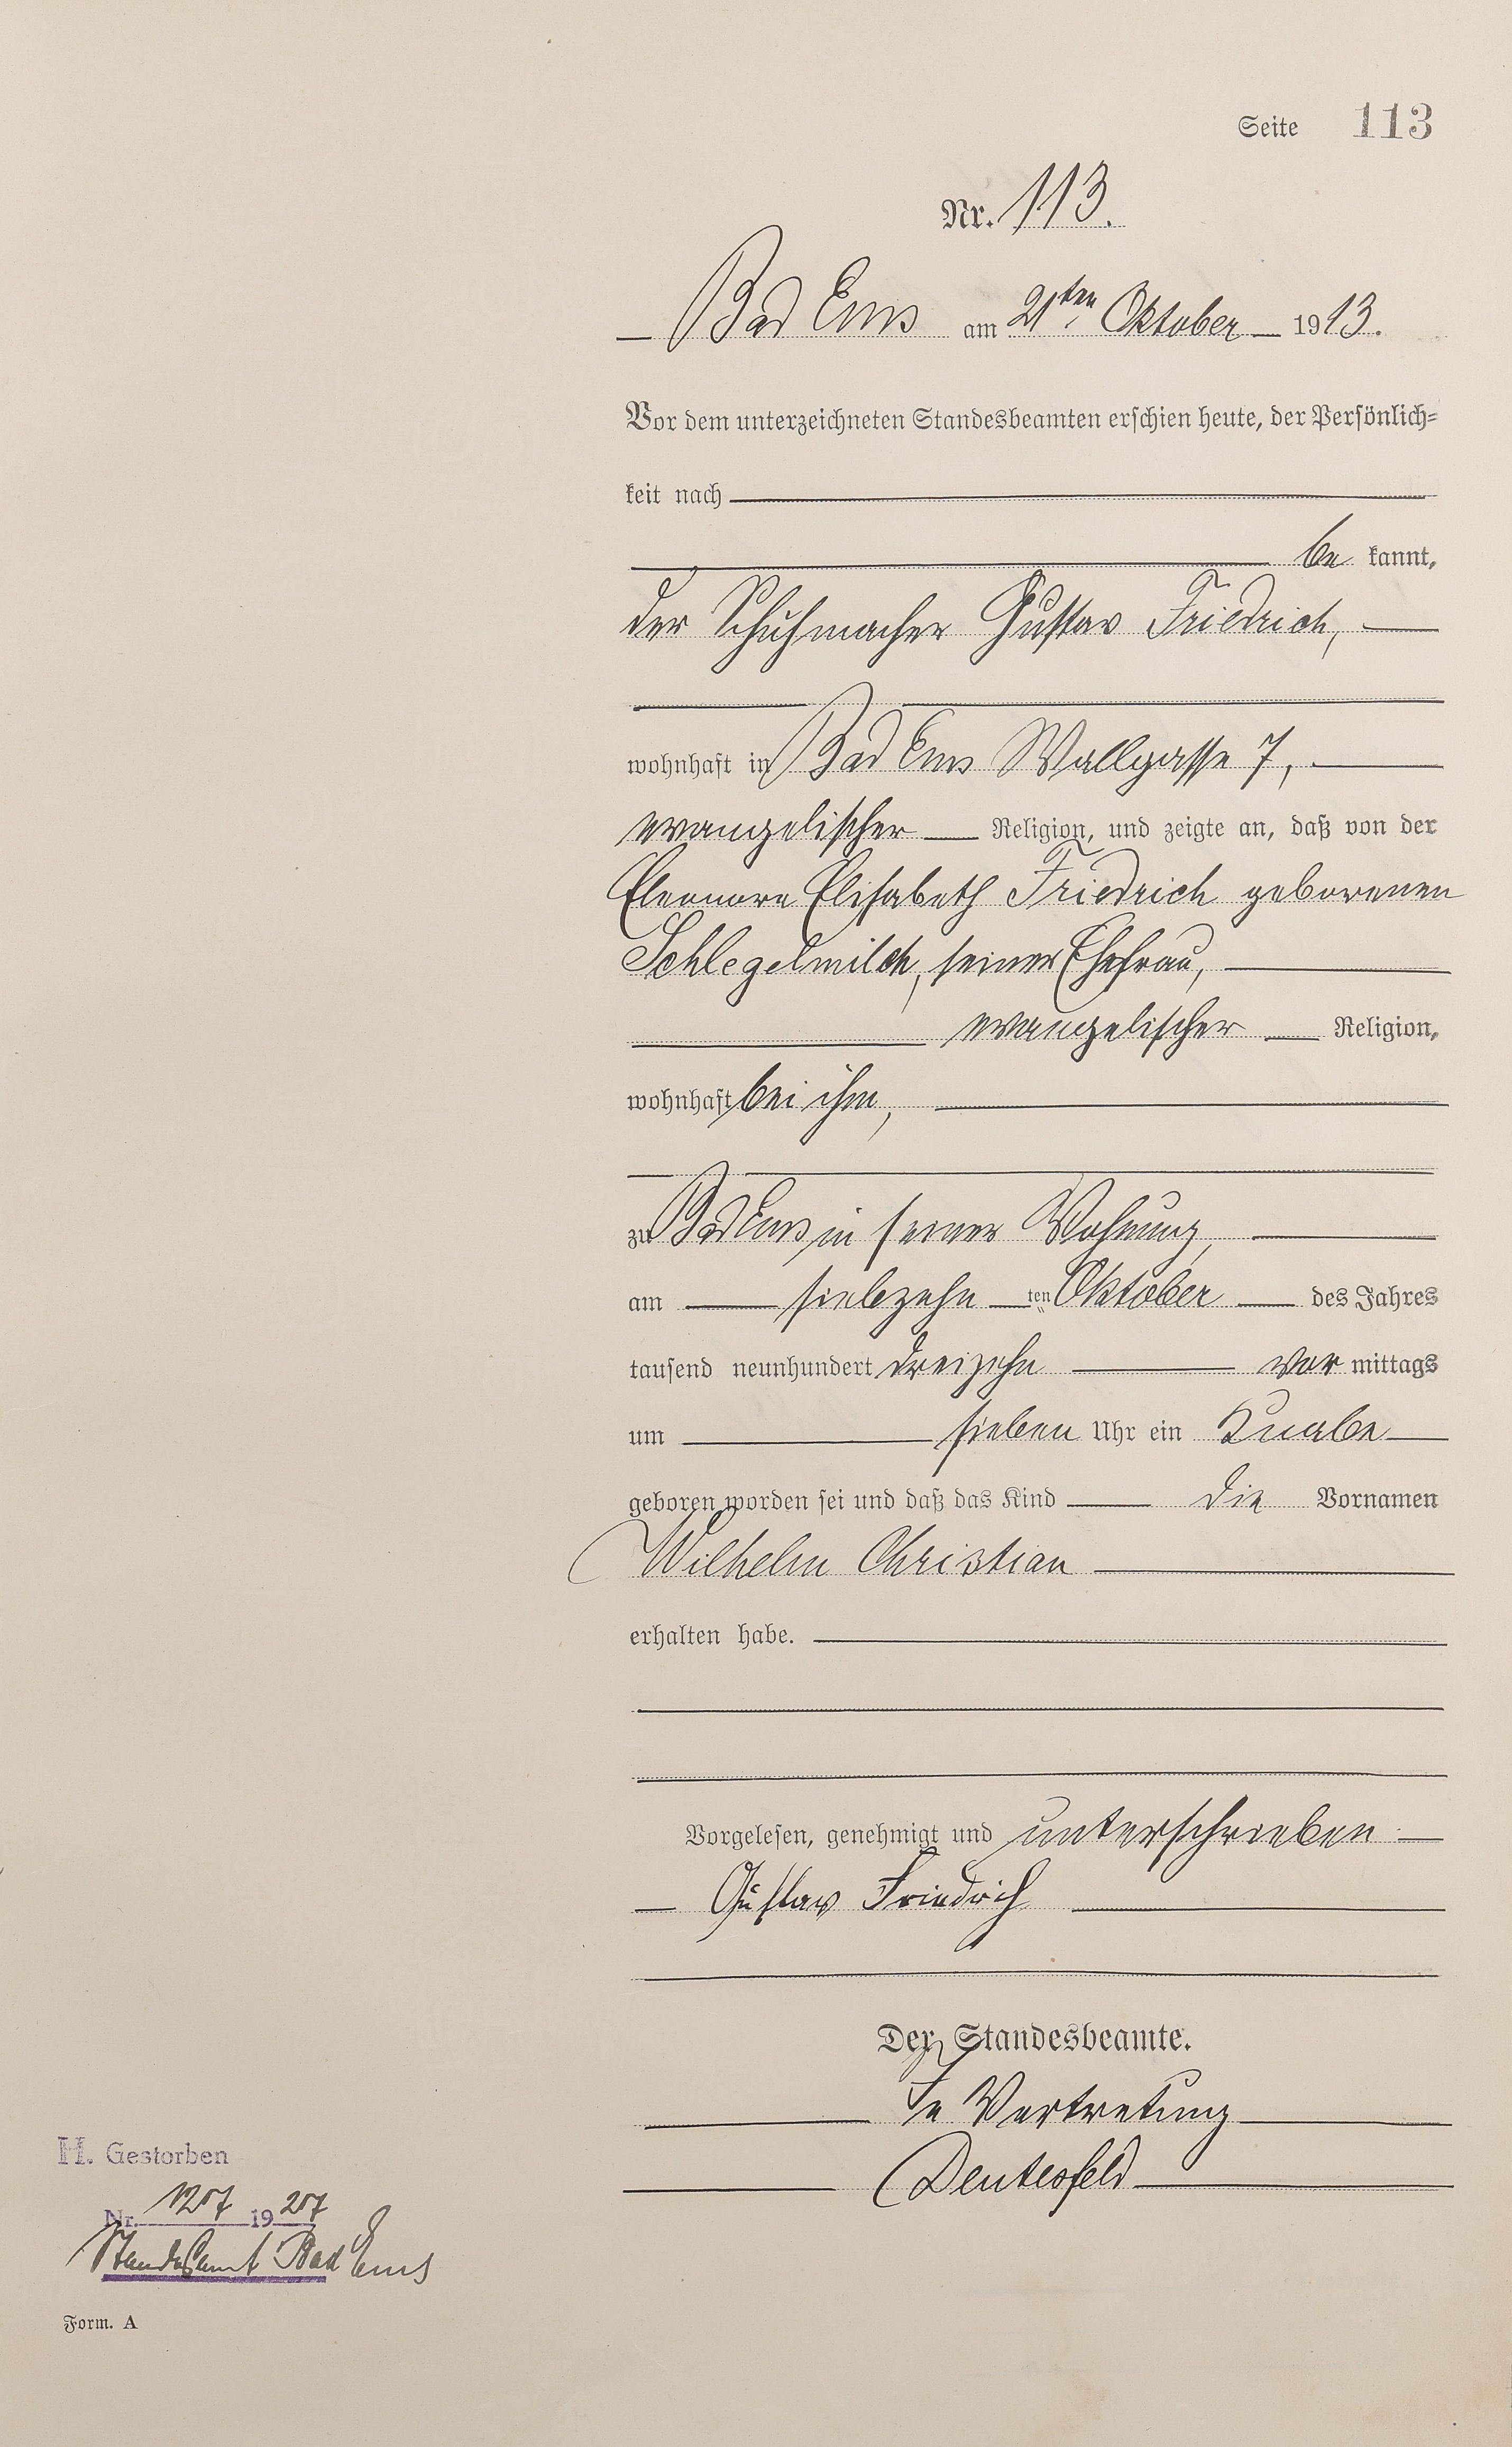 Seite 113
Nr. 113.
Bad Ems am 21ten Oktober 1913.
Vor dem unterzeichneten Standesbeamten erschien heute, der Persönlich-
keit nach
be kannt,
der Schuhmacher Gustav Friedrich,
wohnhaft in Bad Ems Wallgasse 7,
evangelischer Religion, und zeigte an, daß von der
Eleonore Elisabeth Friedrich geborenen
Schlegelmilch, seiner Ehefrau,
evangelischer Religion,
wohnhaft bei ihm,
zu Bad Ems in seiner Wohnung,
am siebzehn ten Oktober des Jahres
tausend neunhundert dreizehn vor mittags
um sieben Uhr ein Knabe
geboren worden sei und daß das Kind die Vornamen
Wilhelm Christian
erhalten habe.
Vorgelesen, genehmigt und unterschrieben
Gustav Friedrich
Der Standesbeamte.
In Vertretung
H. Gestorben
Nr. 19
Standesamt Bad Ems
Form. A